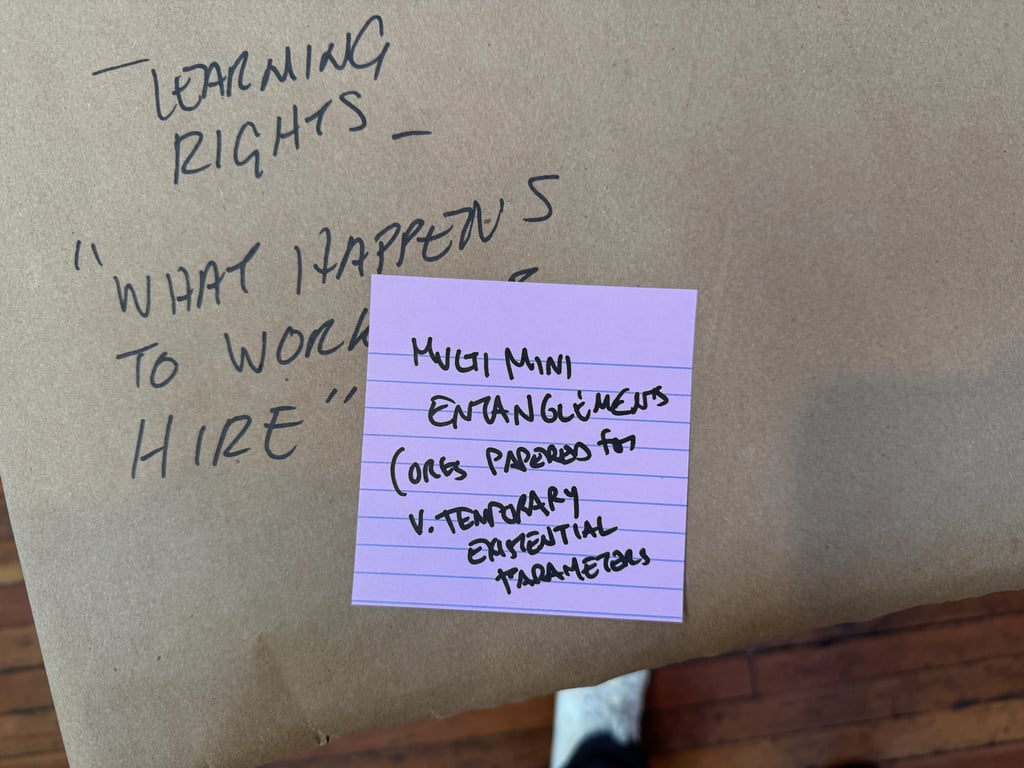 — LEARNING
RIGHTS —
"WHAT HAPPENS
TO WORK
HIRE"
MULTI MINI
ENTANGLEMENTS
(ORGS PAPERED for
V. TEMPORARY
EXISTENTIAL
PARAMETERS